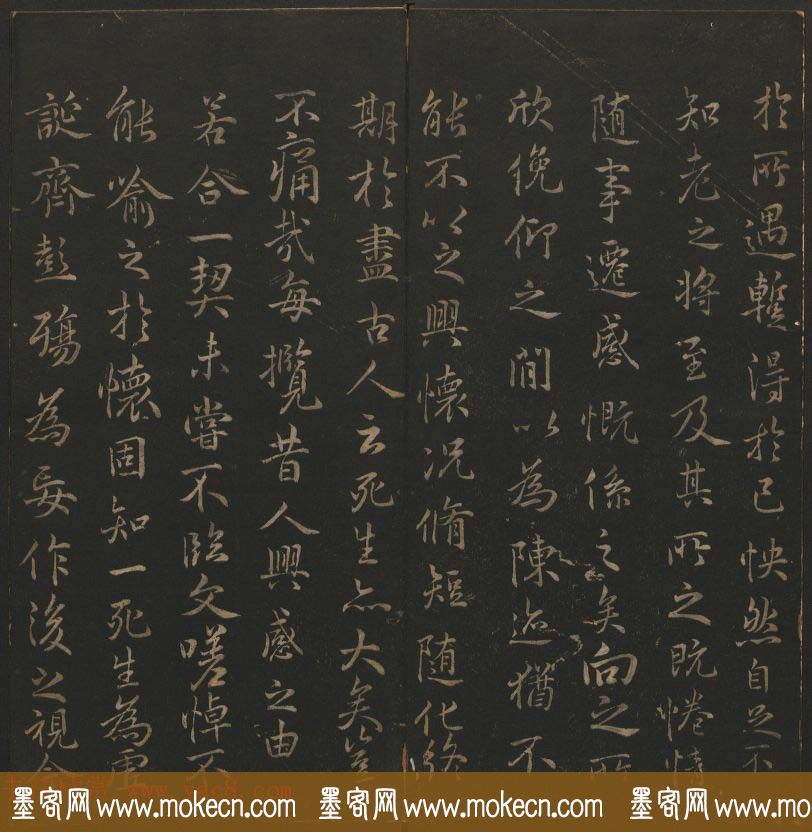 於所遇蹔得於己怏然自足不
知老之將至及其所之既惓情
隨事遷感慨係之矣向之所
欣俛仰之間以為陳迹猶不
能不以之興懷況脩短隨化終
期於盡古人云死生亦大矣豈
不痛哉每攬昔人興感之由
若合一契未嘗不臨文嗟悼不
能喻之於懷固知一死生為虛
誕齊彭殤為妄作後之視今
墨客网 www.mokecn.com 墨客网 www.mokecn.com 墨客网 www.mokecn.com